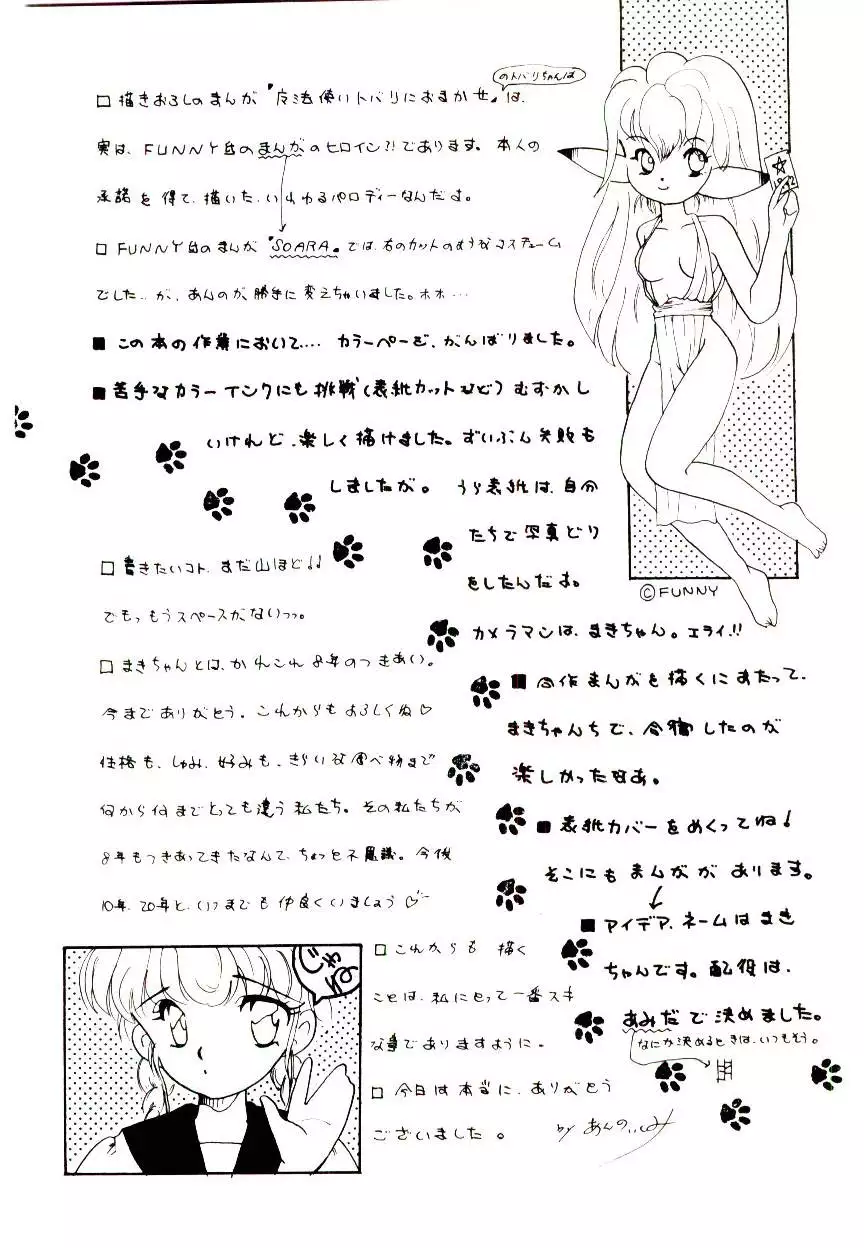 のトバリちゃんは
□描きおろしのまんが『反法使いトバリにおまかせ』は、
実は、FUNNY皛のまんがのヒロイン?!であります。本人の
承諾を得て、描いた、いわゆるパロディーなんだよ。
□FUNNY皛のまんが『SOARA』では、右のカットのようなコスチューム
でした…が、あんのが、勝手に変えちゃいました。ホホ…
■この本の作業において…. カラーページを、がんばりました。
■苦手なカラーインクにも挑戦(表紙カットなど)むずかし
いけれど、楽しく描けました。ずいぶん失敗も
しましたが。 うら表紙は、自分
たちで写真どり
をしたんだよ。
カメラマンは、まきちゃん。エライ!!
©FUNNY
□書きたいコト、まだ山ほど!!
でもっもうスペースがないっっ。
□まきちゃんとは、かれこれ8年のつきあい。
今までありがとう。これからもよろしくね♡
性格も、しゅみ、好みも、きらいな食べ物まで
何から何までとっても違う私たち。その私たちが
8年もつきあってきたなんて、ちょっと不思議。今後
10年、20年と、いつまでも仲良くいましょう♡
■合作まんがを描くにあたって、
まきちゃんちで、合宿したのが
楽しかったなあ。
■表紙カバーをめくってね!
そこにもまんがが あります。
■アイデア、ネームはまき
ちゃんです。配役は、
あみだで決めました。
なにか決めるときは、いつもそう。
じゃね
□これからも 描く
ことは、私にとって一番スキ
な事でありますように。
□今日は本当に、ありがとう
ございました。 by あんの